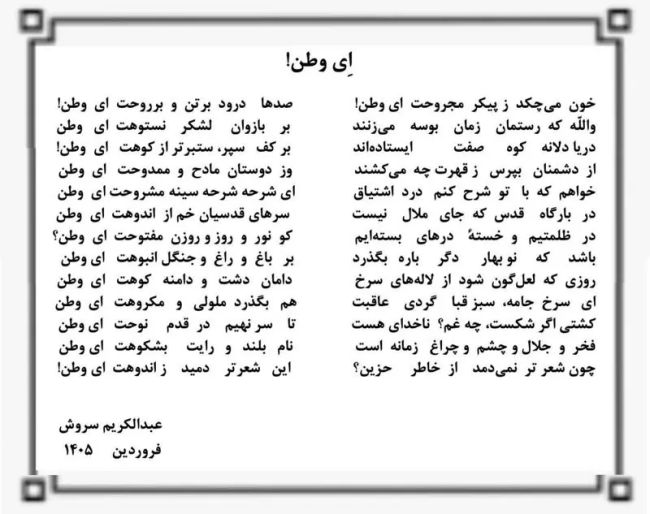 اِی وطن!
خون می‌چکد ز پیکر مجروحت ای وطن! صدها درود برتن و برروحت ای وطن!
واللّه که رستمان زمان بوسه می‌زنند بر بازوان لشکر نستوهت ای وطن
دریا دلانه کوه صفت ایستاده‌اند بر کف سپر، ستبرتر از کوهت ای وطن!
از دشمنان بپرس ز قهرت چه می‌کشند وز دوستان مادح و ممدوحت ای وطن
خواهم که با تو شرح کنم درد اشتیاق ای شرحه شرحه سینه مشروحت ای وطن
در بارگاه قدس که جای ملال نیست سرهای قدسیان خم از اندوهت ای وطن
در ظلمتیم و خستهٔ درهای بسته‌ایم کو نور و روز و روزن مفتوحت ای وطن؟
باشد که نوبهار دگر باره بگذرد بر باغ و راغ و جنگل انبوهت ای وطن
روزی که لعل‌گون شود از لاله‌های سرخ دامان دشت و دامنه کوهت ای وطن
ای سرخ جامه، سبز قبا گردی عاقبت هم بگذرد ملولی و مکروهت ای وطن
کشتی اگر شکست، چه غم؟ ناخدای هست تا سر نهیم در قدم نوحت ای وطن
فخر و جلال و چشم و چراغ زمانه است نام بلند و رایت بشکوهت ای وطن
چون شعر تر نمی‌دمد از خاطر حزین؟ این شعرتر دمید ز اندوهت ای وطن!
عبدالکریم سروش
فروردین ۱۴۰۵